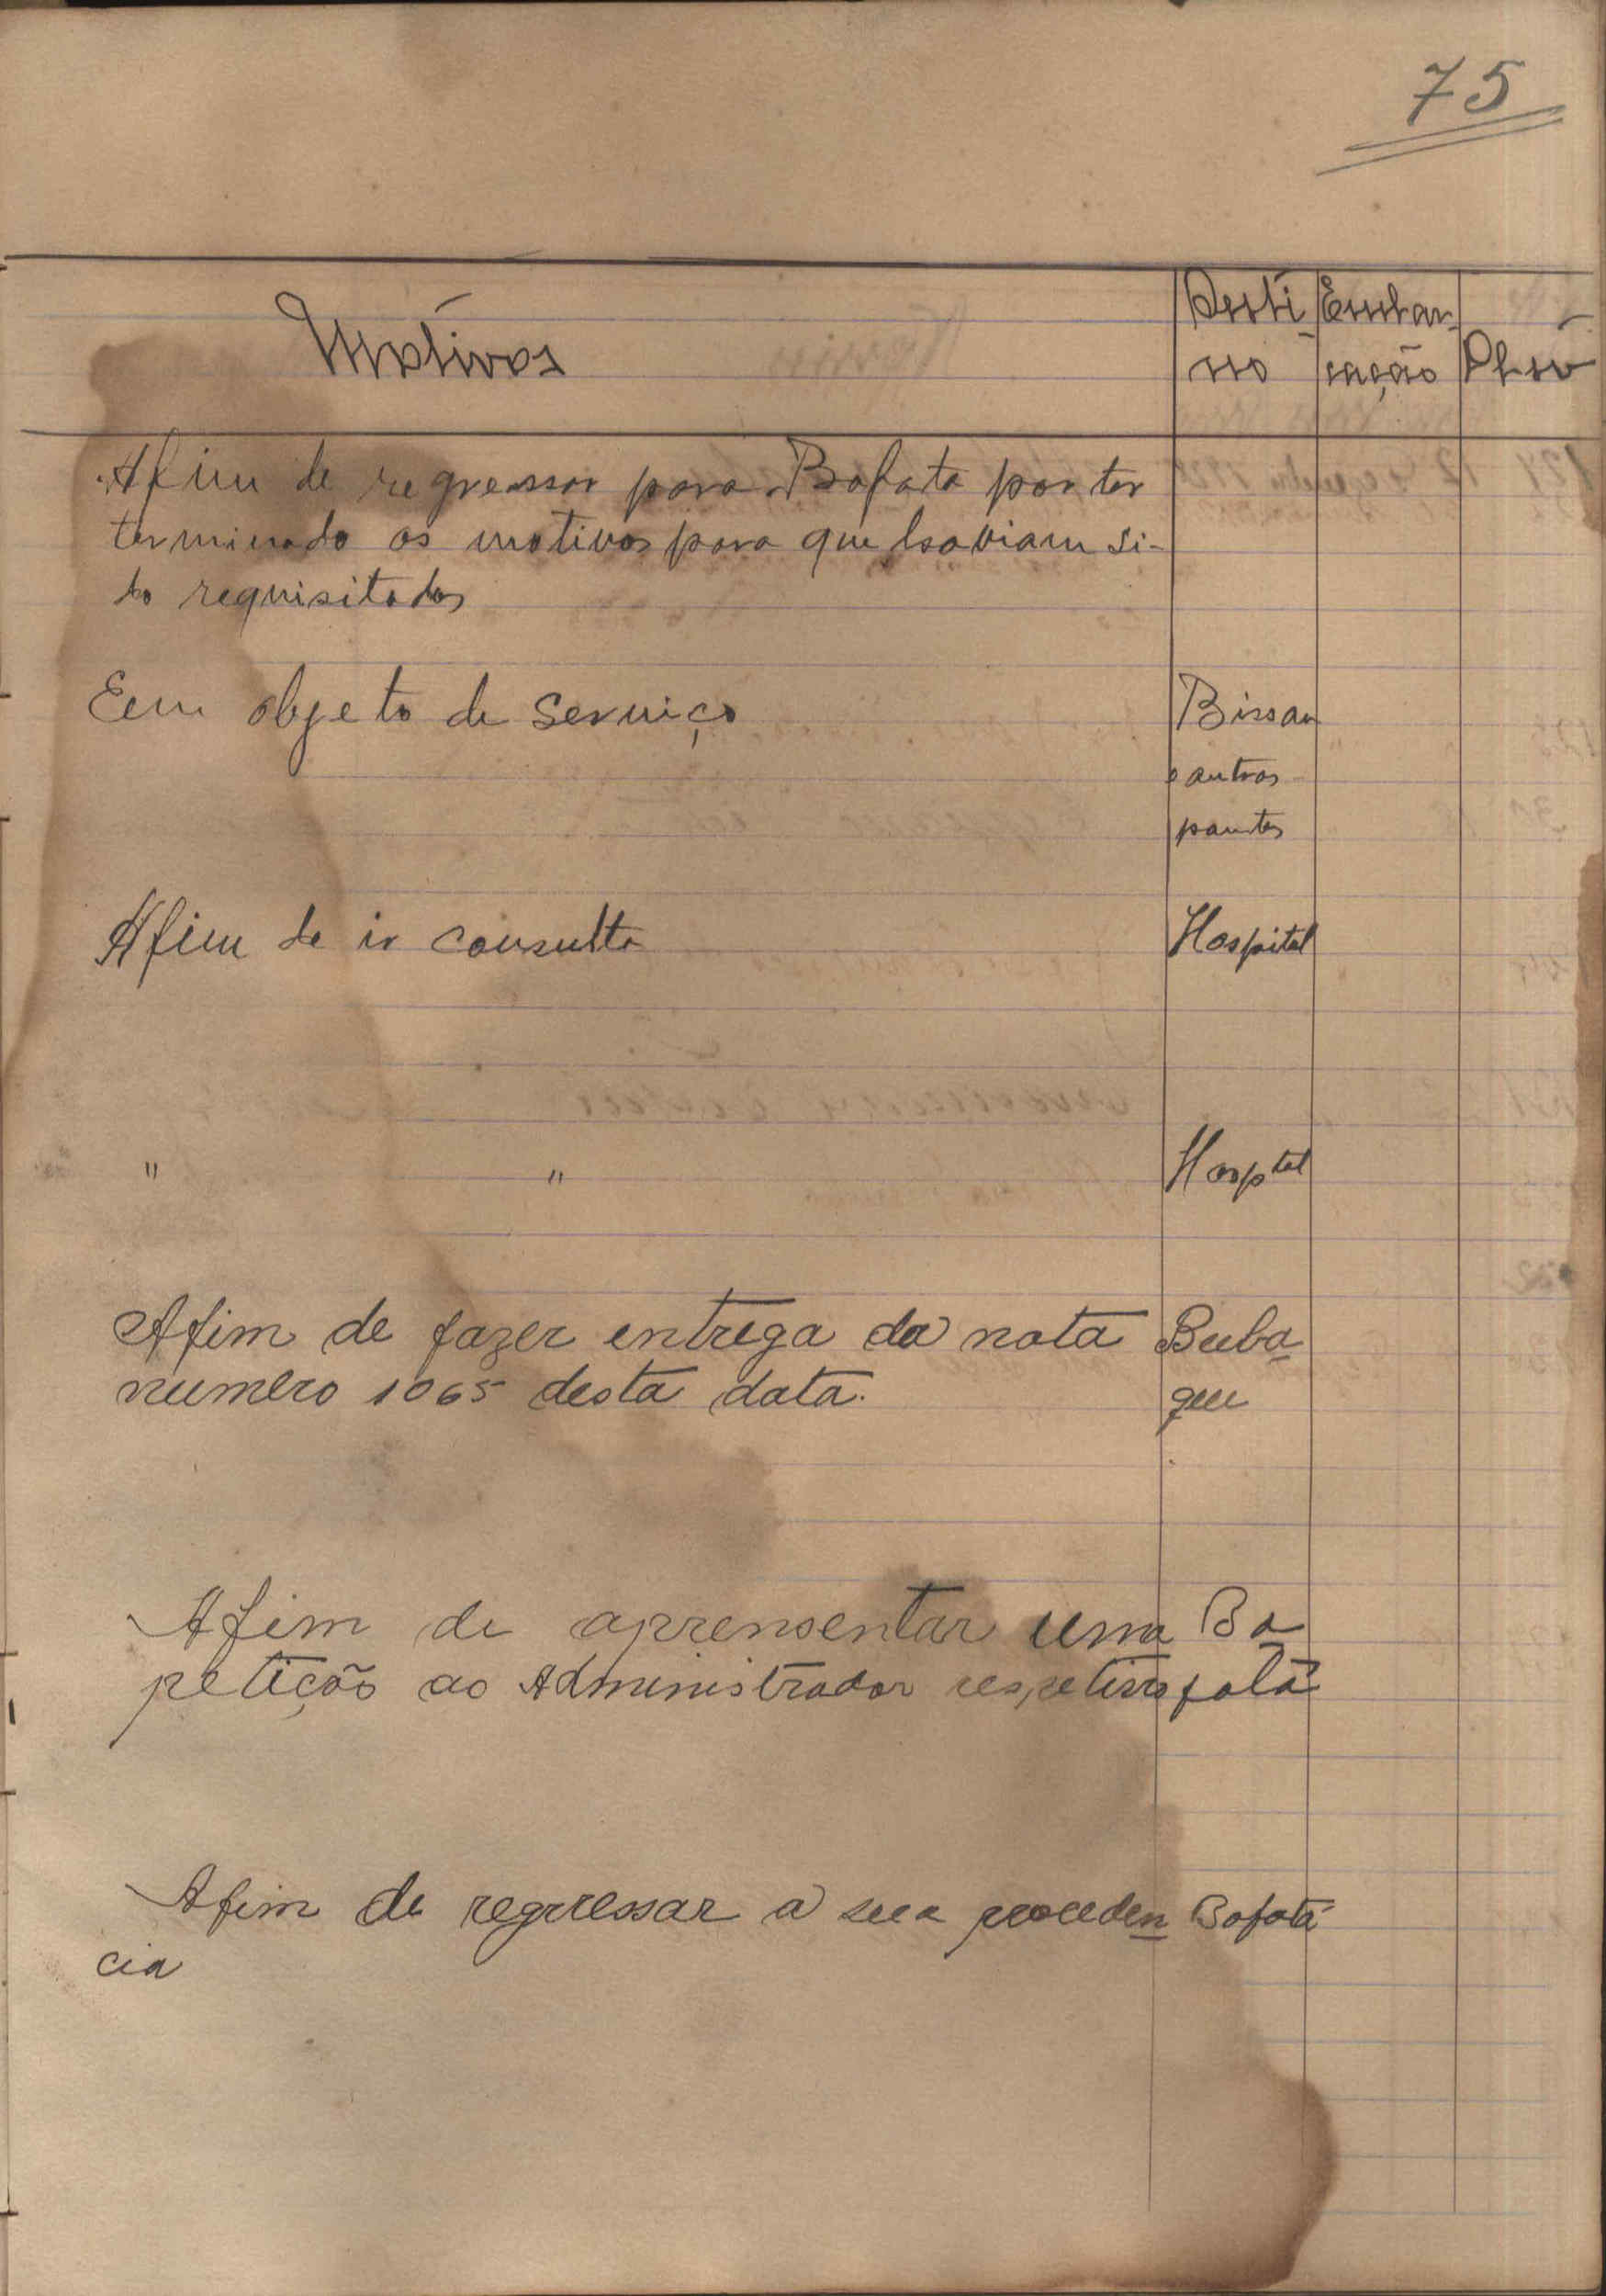 75
Motivos Desti- Embar-
no cação Obsv
Afim de regressar para Bafata por ter
terminado os motivos para que haviam si-
do requisitados
Em objeto de serviço Bissau
e outros
pontos
Afim de ir consulta Hospital
" " Hosptal
Afim de fazer entrega da nota Buba-
numero 1065 desta data. que
Afim de aprensentar uma Ba
petição ao Administrador respetivo fatá
Afim de regressar a sua proceden Bafatá
cia